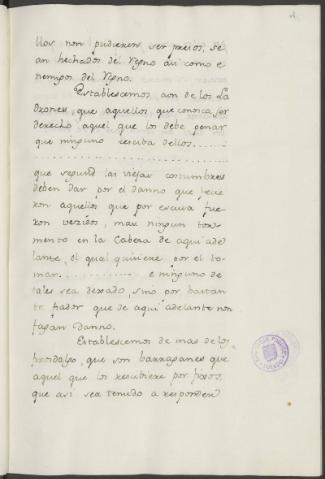 4.
llos non pudieren ser presos, se
an hechados del Regno asi como e
nemigos del Regno.
Establescemos aon de los La
drones, que aquellos que conosca, ser
derecho, aquel que los debe penar
que ninguno resciba dellos.......
..............................
que segund las viejas costumbres
deben dar por el danno que ficie
ron aquellos que por escusa fue
ron venidos, mas ningun tor
mento en la Cabeza de aqui ade
lante, el qual quisiere por el to
mar............ e ninguno de
tales sea dexado, sino por bastan
te fiador que de aqui adelante non
fagan danno.
Establescemos de mas de los
fixosdalgo, que son barraganes que
aquel que los rescibiere por
que asi sea tenudo a responder